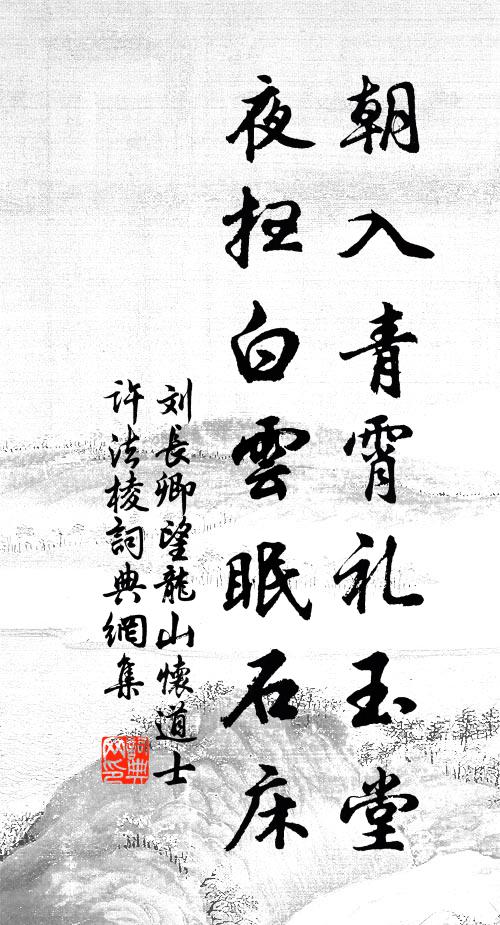 朝入青霄礼玉堂
夜扫白雲眠石床
刘長卿望龍山懷道士
许法棱詞典網集